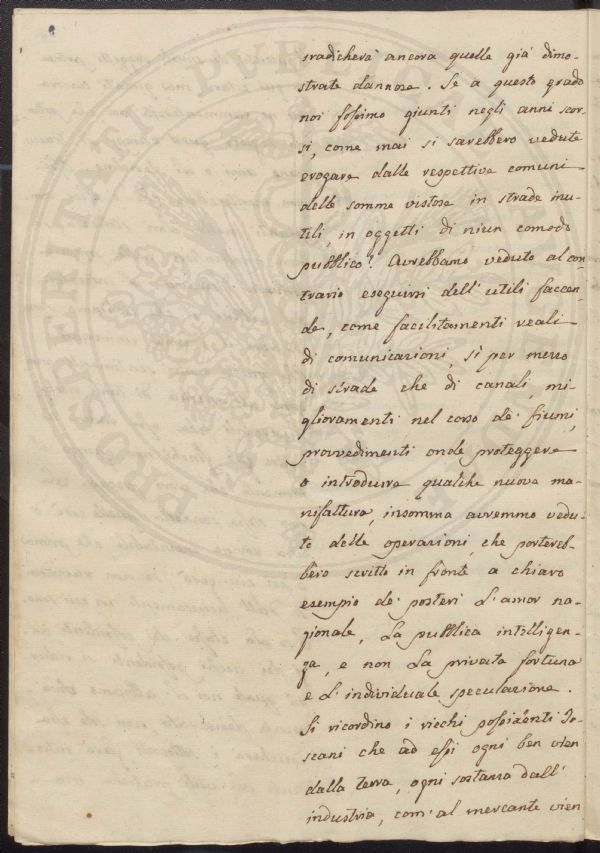 sradicherà ancora quelle già dimo-
strate dannose. Se a questo grado
noi fossimo giunti negli anni scor-
si, come mai si sarebbero vedute
erogare dalle respettive comuni
delle somme vistose in strade inu-
tili, in oggetti di niun comodo
pubblico? Avrebbamo veduto al con-
trario eseguirsi dell'utili faccen-
de, come facilitamenti reali
di comunicazioni, sì per mezzo
di strade che di canali, mi-
glioramenti nel corso de' fiumi,
provvedimenti onde proteggere
o introdurre qualche nuova ma-
nifattura, insomma avremmo vedu-
te delle operazioni, che portereb-
bero scritto in fronte a chiaro
esempio de' posteri L'amor na-
zionale, La pubblica intelligen-
za, e non La privata fortuna
e L'individuale speculazione.
Si ricordino i ricchi possidenti To-
scani che ad essi ogni ben vien
dalla terra, ogni sostanza dall'
industria, com'al mercante vien
PROSPERITATI PVB